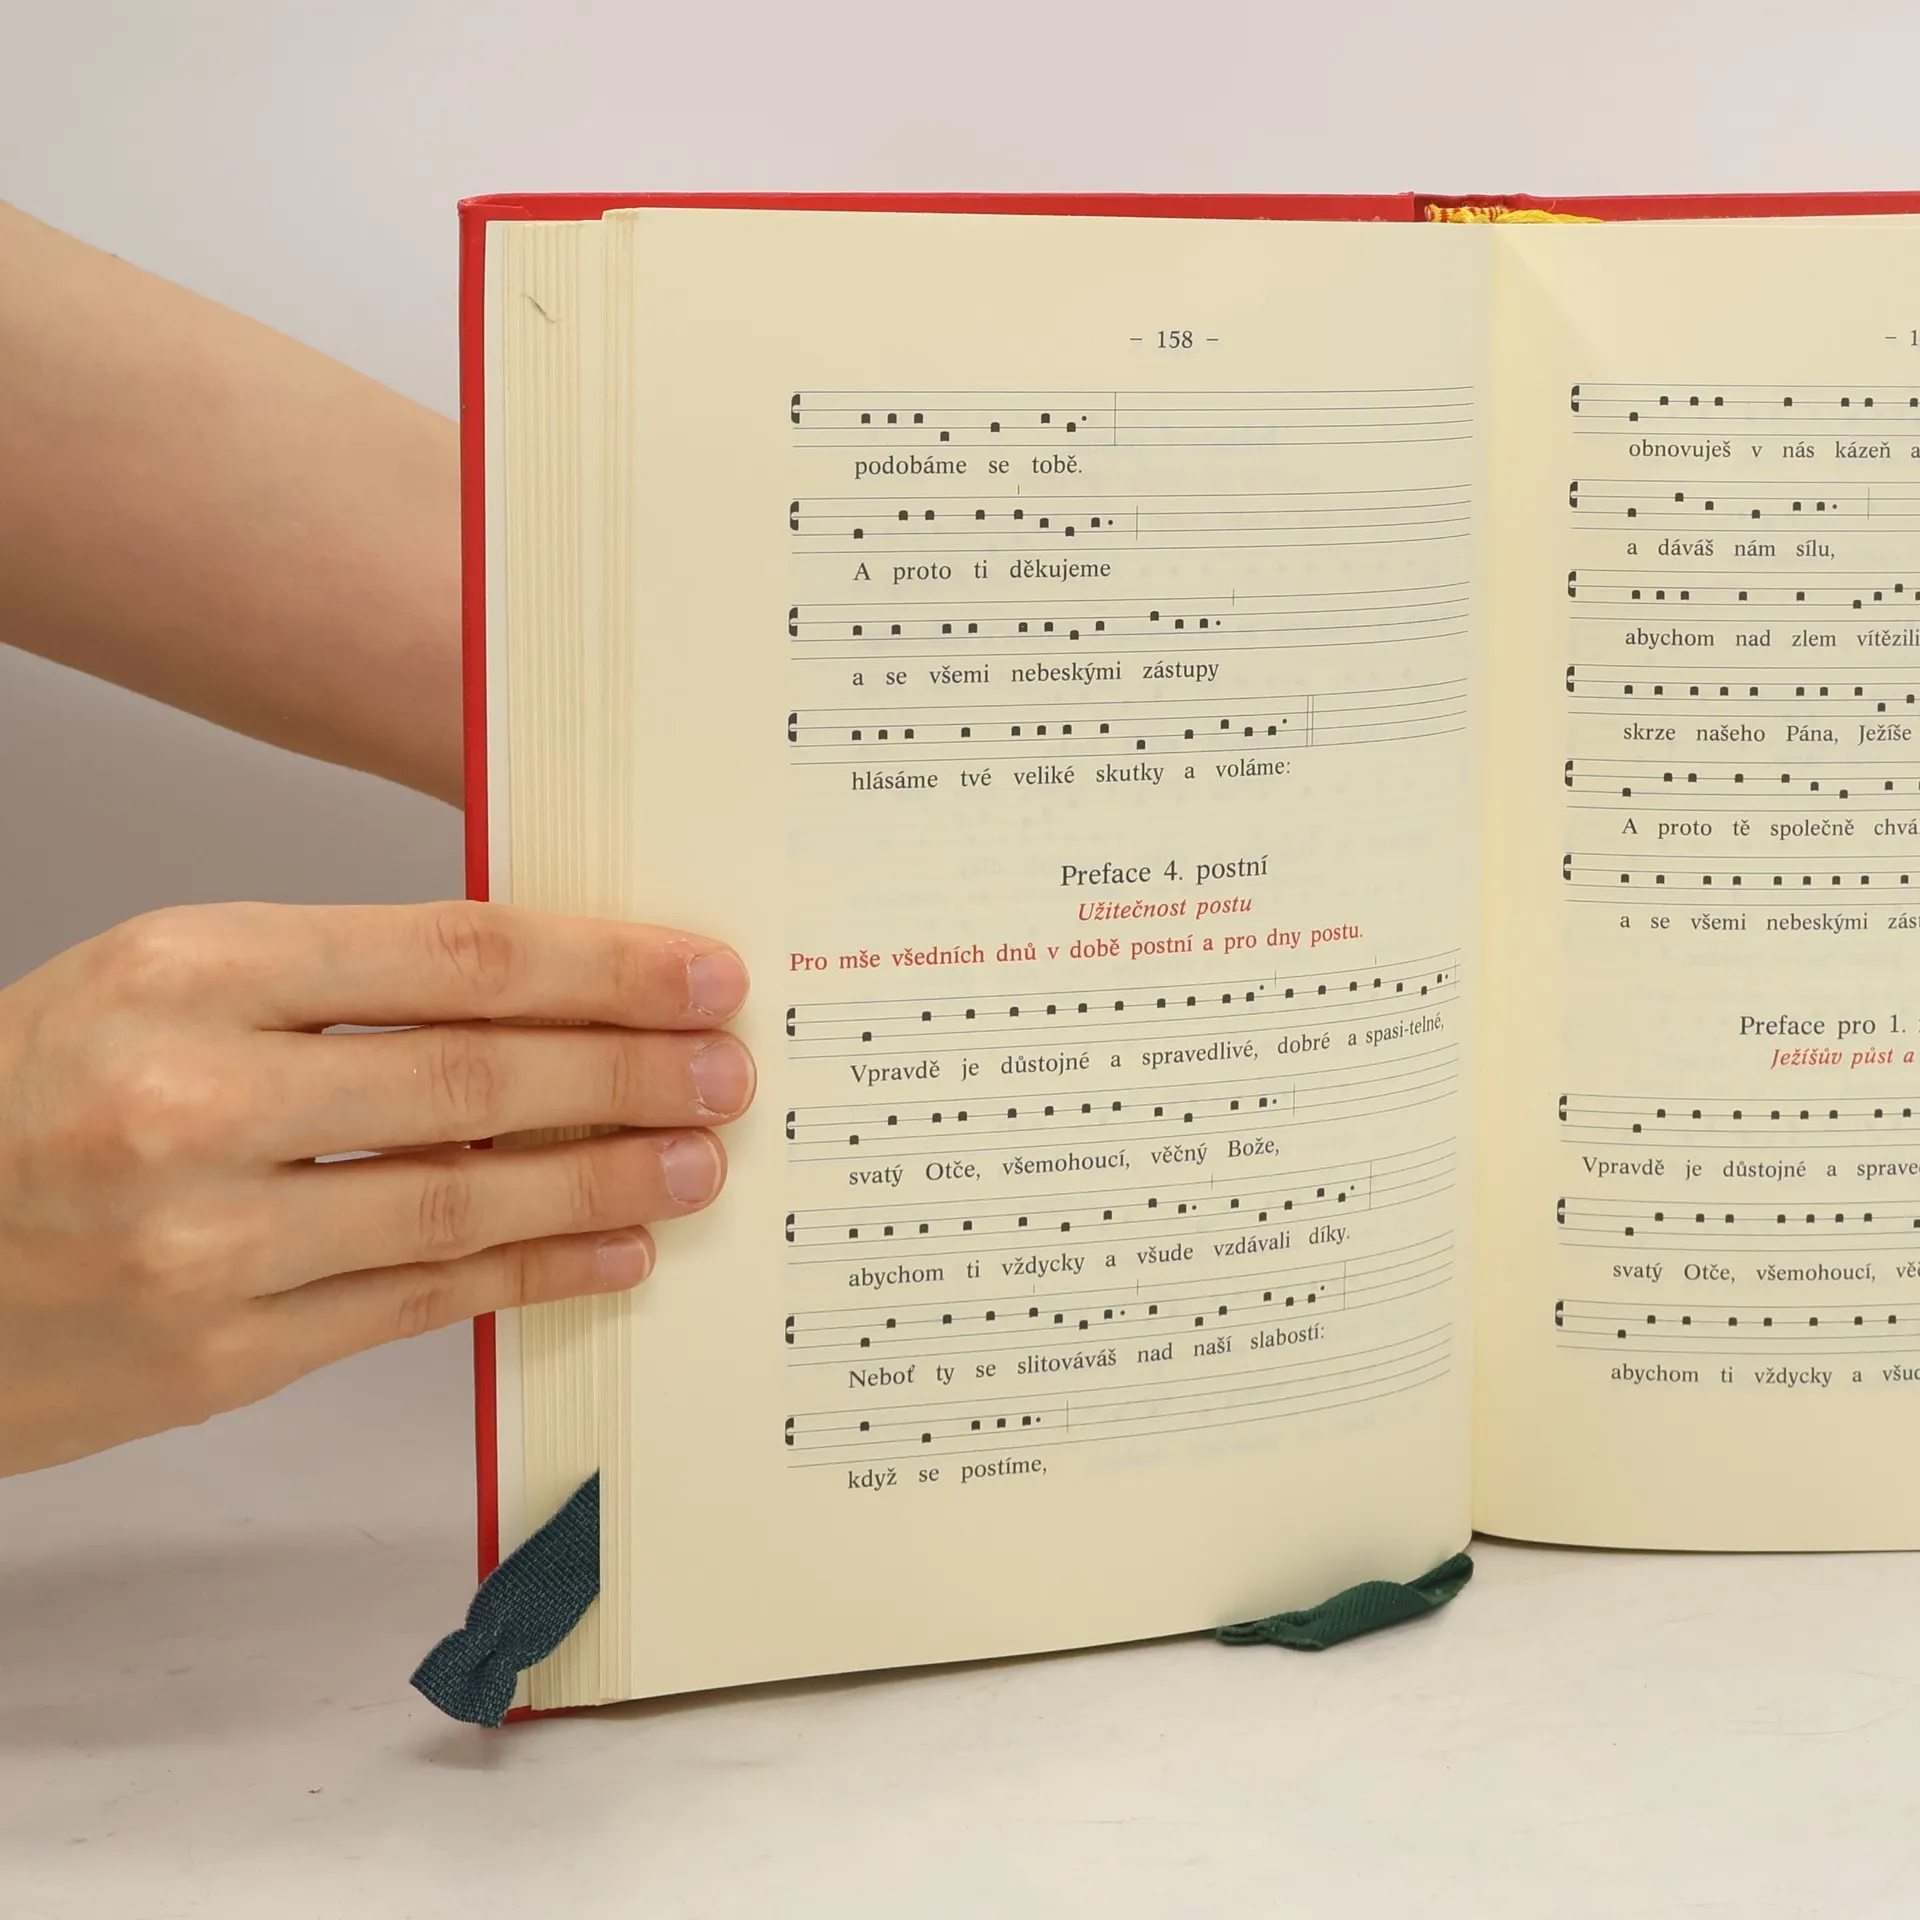 – 158 –
podobáme se tobě.
A proto ti děkujeme
a se všemi nebeskými zástupy
hlásáme tvé veliké skutky a voláme:
Preface 4. postní
Užitečnost postu
Pro mše všedních dnů v době postní a pro dny postu.
Vpravdě je důstojné a spravedlivé, dobré a spasi-telné,
svatý Otče, všemohoucí, věčný Bože,
abychom ti vždycky a všude vzdávali díky.
Neboť ty se slitováváš nad naší slabostí:
když se postíme,
obnovuješ v nás kázeň a
a dáváš nám sílu,
abychom nad zlem vítězili
skrze našeho Pána, Ježíše
A proto tě společně
a se všemi nebeskými
Preface pro 1.
Ježíšův půst a
Vpravdě je důstojné a
svatý Otče, všemohoucí,
abychom ti vždycky a